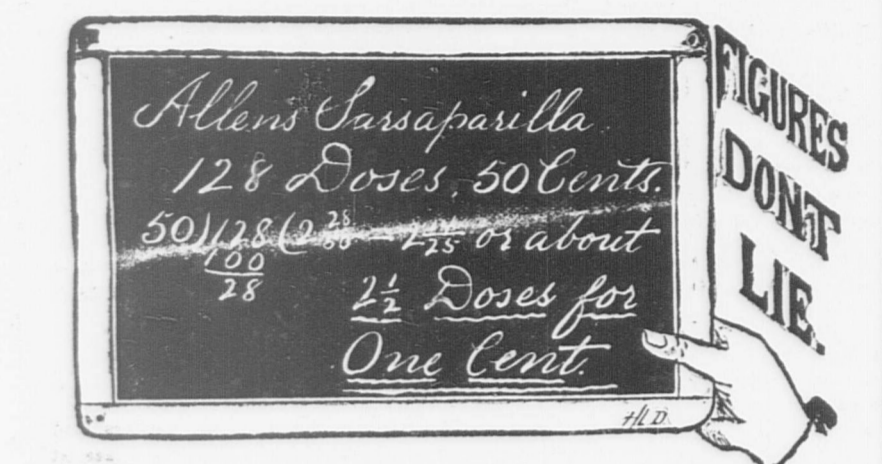 Allens Sarsaparilla
128 Doses, 50 Cents.
50)128(2 28/50 — 2 14/25 or about
100
28
2 1/2 Doses for
One Cent.
FIGURES
DONT
LIE.
HLD